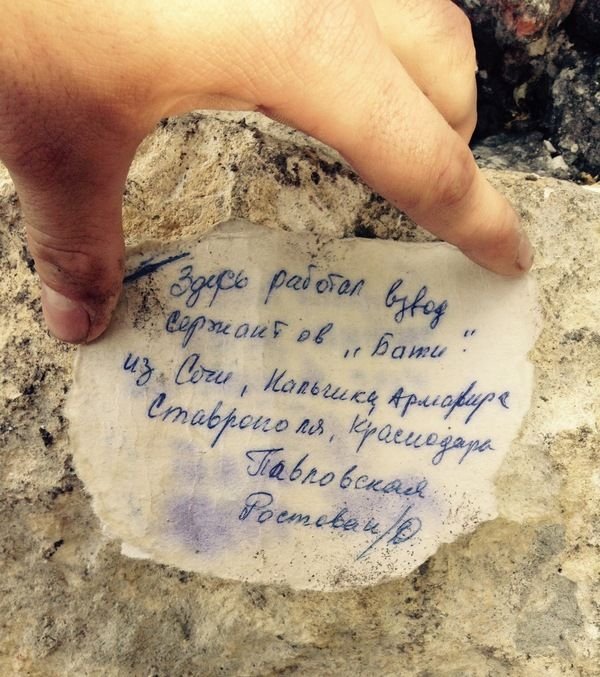 Здесь работал взвод
сержантов „Бати"
из Сочи, Нальчика, Армавира
Ставрополя, Краснодара
Павловская
Ростова н/Д.